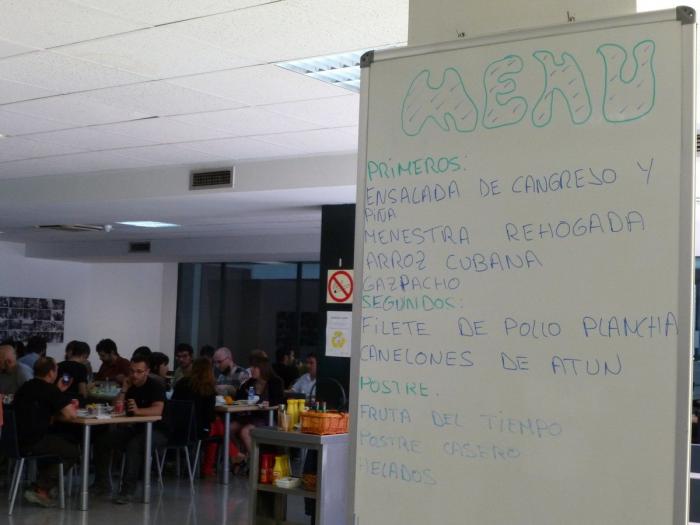 MENU
PRIMEROS:
ENSALADA DE CANGREJO Y
PIÑA
MENESTRA REHOGADA
ARROZ CUBANA
GAZPACHO
SEGUNDOS:
FILETE DE POLLO PLANCHA
CANELONES DE ATUN
POSTRE.
FRUTA DEL TIEMPO
POSTRE CASERO
HELADOS